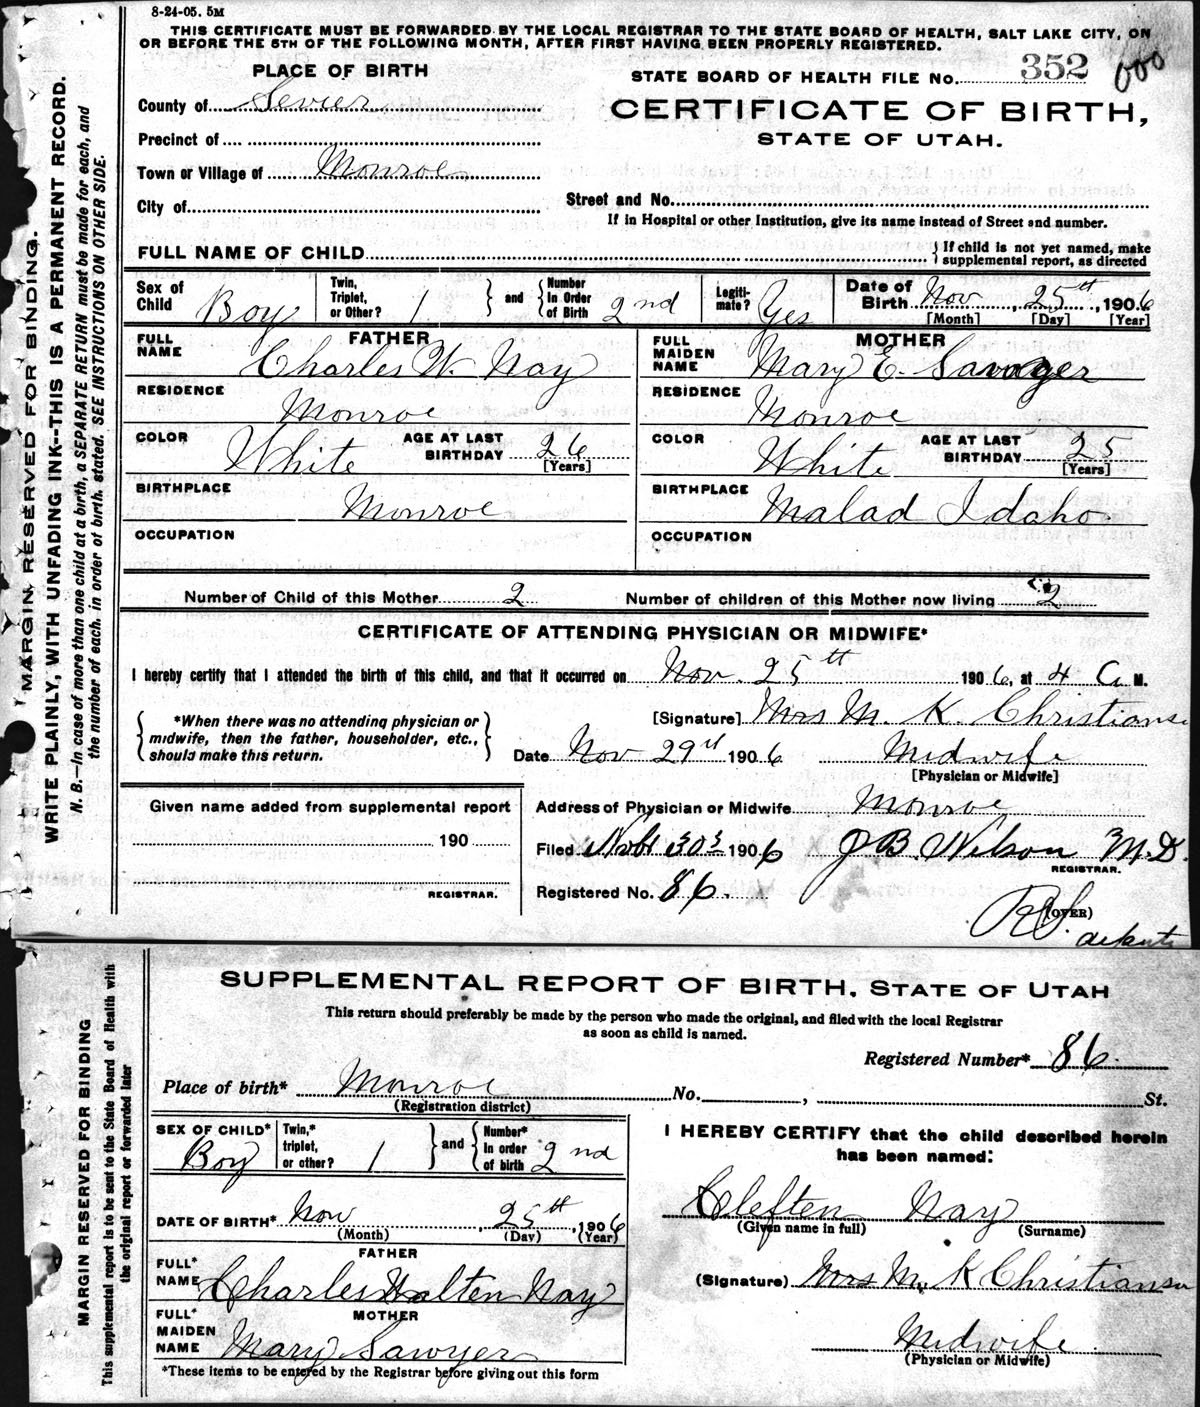 8-24-05. 5M
THIS CERTIFICATE MUST BE FORWARDED BY THE LOCAL REGISTRAR TO THE STATE BOARD OF HEALTH, SALT LAKE CITY, ON
OR BEFORE THE 5TH OF THE FOLLOWING MONTH, AFTER FIRST HAVING BEEN PROPERLY REGISTERED.
MARGIN RESERVED FOR BINDING.
WRITE PLAINLY, WITH UNFADING INK--THIS IS A PERMANENT RECORD.
N. B.--In case of more than one child at a birth, a SEPARATE RETURN must be made for each, and
the number of each, in order of birth, stated. SEE INSTRUCTIONS ON OTHER SIDE.
PLACE OF BIRTH
STATE BOARD OF HEALTH FILE No. 352
County of Sevier
CERTIFICATE OF BIRTH,
STATE OF UTAH.
Precinct of
Town or Village of Monroe
City of
Street and No.
If in Hospital or other Institution, give its name instead of Street and number.
FULL NAME OF CHILD
{If child is not yet named, make
supplemental report, as directed
Sex of Child Boy
Twin, Triplet, or Other? 1 } and { Number In Order of Birth 2nd
Legitimate? Yes
Date of Birth Nov, 25th, 1906
[Month] [Day] [Year]
FATHER
FULL NAME Charles W. Nay
MOTHER
FULL MAIDEN NAME Mary E. Sawyer
RESIDENCE Monroe
RESIDENCE Monroe
COLOR White AGE AT LAST BIRTHDAY 26 [Years]
COLOR White AGE AT LAST BIRTHDAY 25 [Years]
BIRTHPLACE Monroe
BIRTHPLACE Malad Idaho.
OCCUPATION
OCCUPATION
Number of Child of this Mother 2 Number of children of this Mother now living 2
CERTIFICATE OF ATTENDING PHYSICIAN OR MIDWIFE*
I hereby certify that I attended the birth of this child, and that it occurred on Nov. 25th 1906, at 4 A M.
{ *When there was no attending physician or
midwife, then the father, householder, etc.,
should make this return. }
[Signature] Mrs M. K. Christians
Date Nov 29th 1906 Midwife
[Physician or Midwife]
Given name added from supplemental report
190
REGISTRAR.
Address of Physician or Midwife Monroe
Filed 30 1906 J B. Wilson M.D.
REGISTRAR.
Registered No. 86.
(OVER)
SUPPLEMENTAL REPORT OF BIRTH, STATE OF UTAH
This return should preferably be made by the person who made the original, and filed with the local Registrar
as soon as child is named.
MARGIN RESERVED FOR BINDING
This supplemental report is to be sent to the State Board of Health with
the original report or forwarded later
Registered Number* 86.
Place of birth* Monroe No. , St.
(Registration district)
SEX OF CHILD* Boy
Twin,* triplet, or other? 1 } and { Number* In order of birth 2nd
I HEREBY CERTIFY that the child described herein
has been named:
DATE OF BIRTH* Nov, 25th, 1906
(Month) (Day) (Year)
Cleften Nay
(Given name in full) (Surname)
FATHER
FULL* NAME Charles Walten Nay
(Signature) Mrs M. K Christiansn
MOTHER
FULL* MAIDEN NAME Mary Sawyer
Midwife
(Physician or Midwife)
*These items to be entered by the Registrar before giving out this form